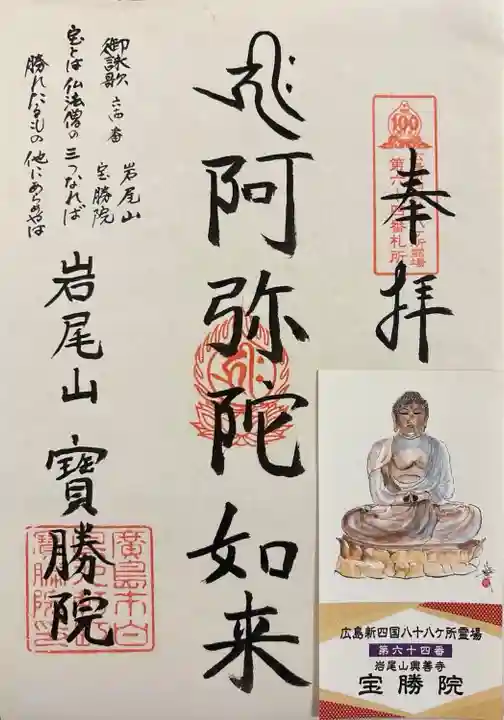 奉拝
100
第六十四番札所
阿弥陀如来
御詠歌 六四番 岩尾山 宝勝院
宝とは仏法僧の三つなれば
勝れたるもの他にあらめやは
岩尾山 寶勝院
広島新四国八十八ケ所霊場
第六十四番
岩尾山興善寺
宝勝院